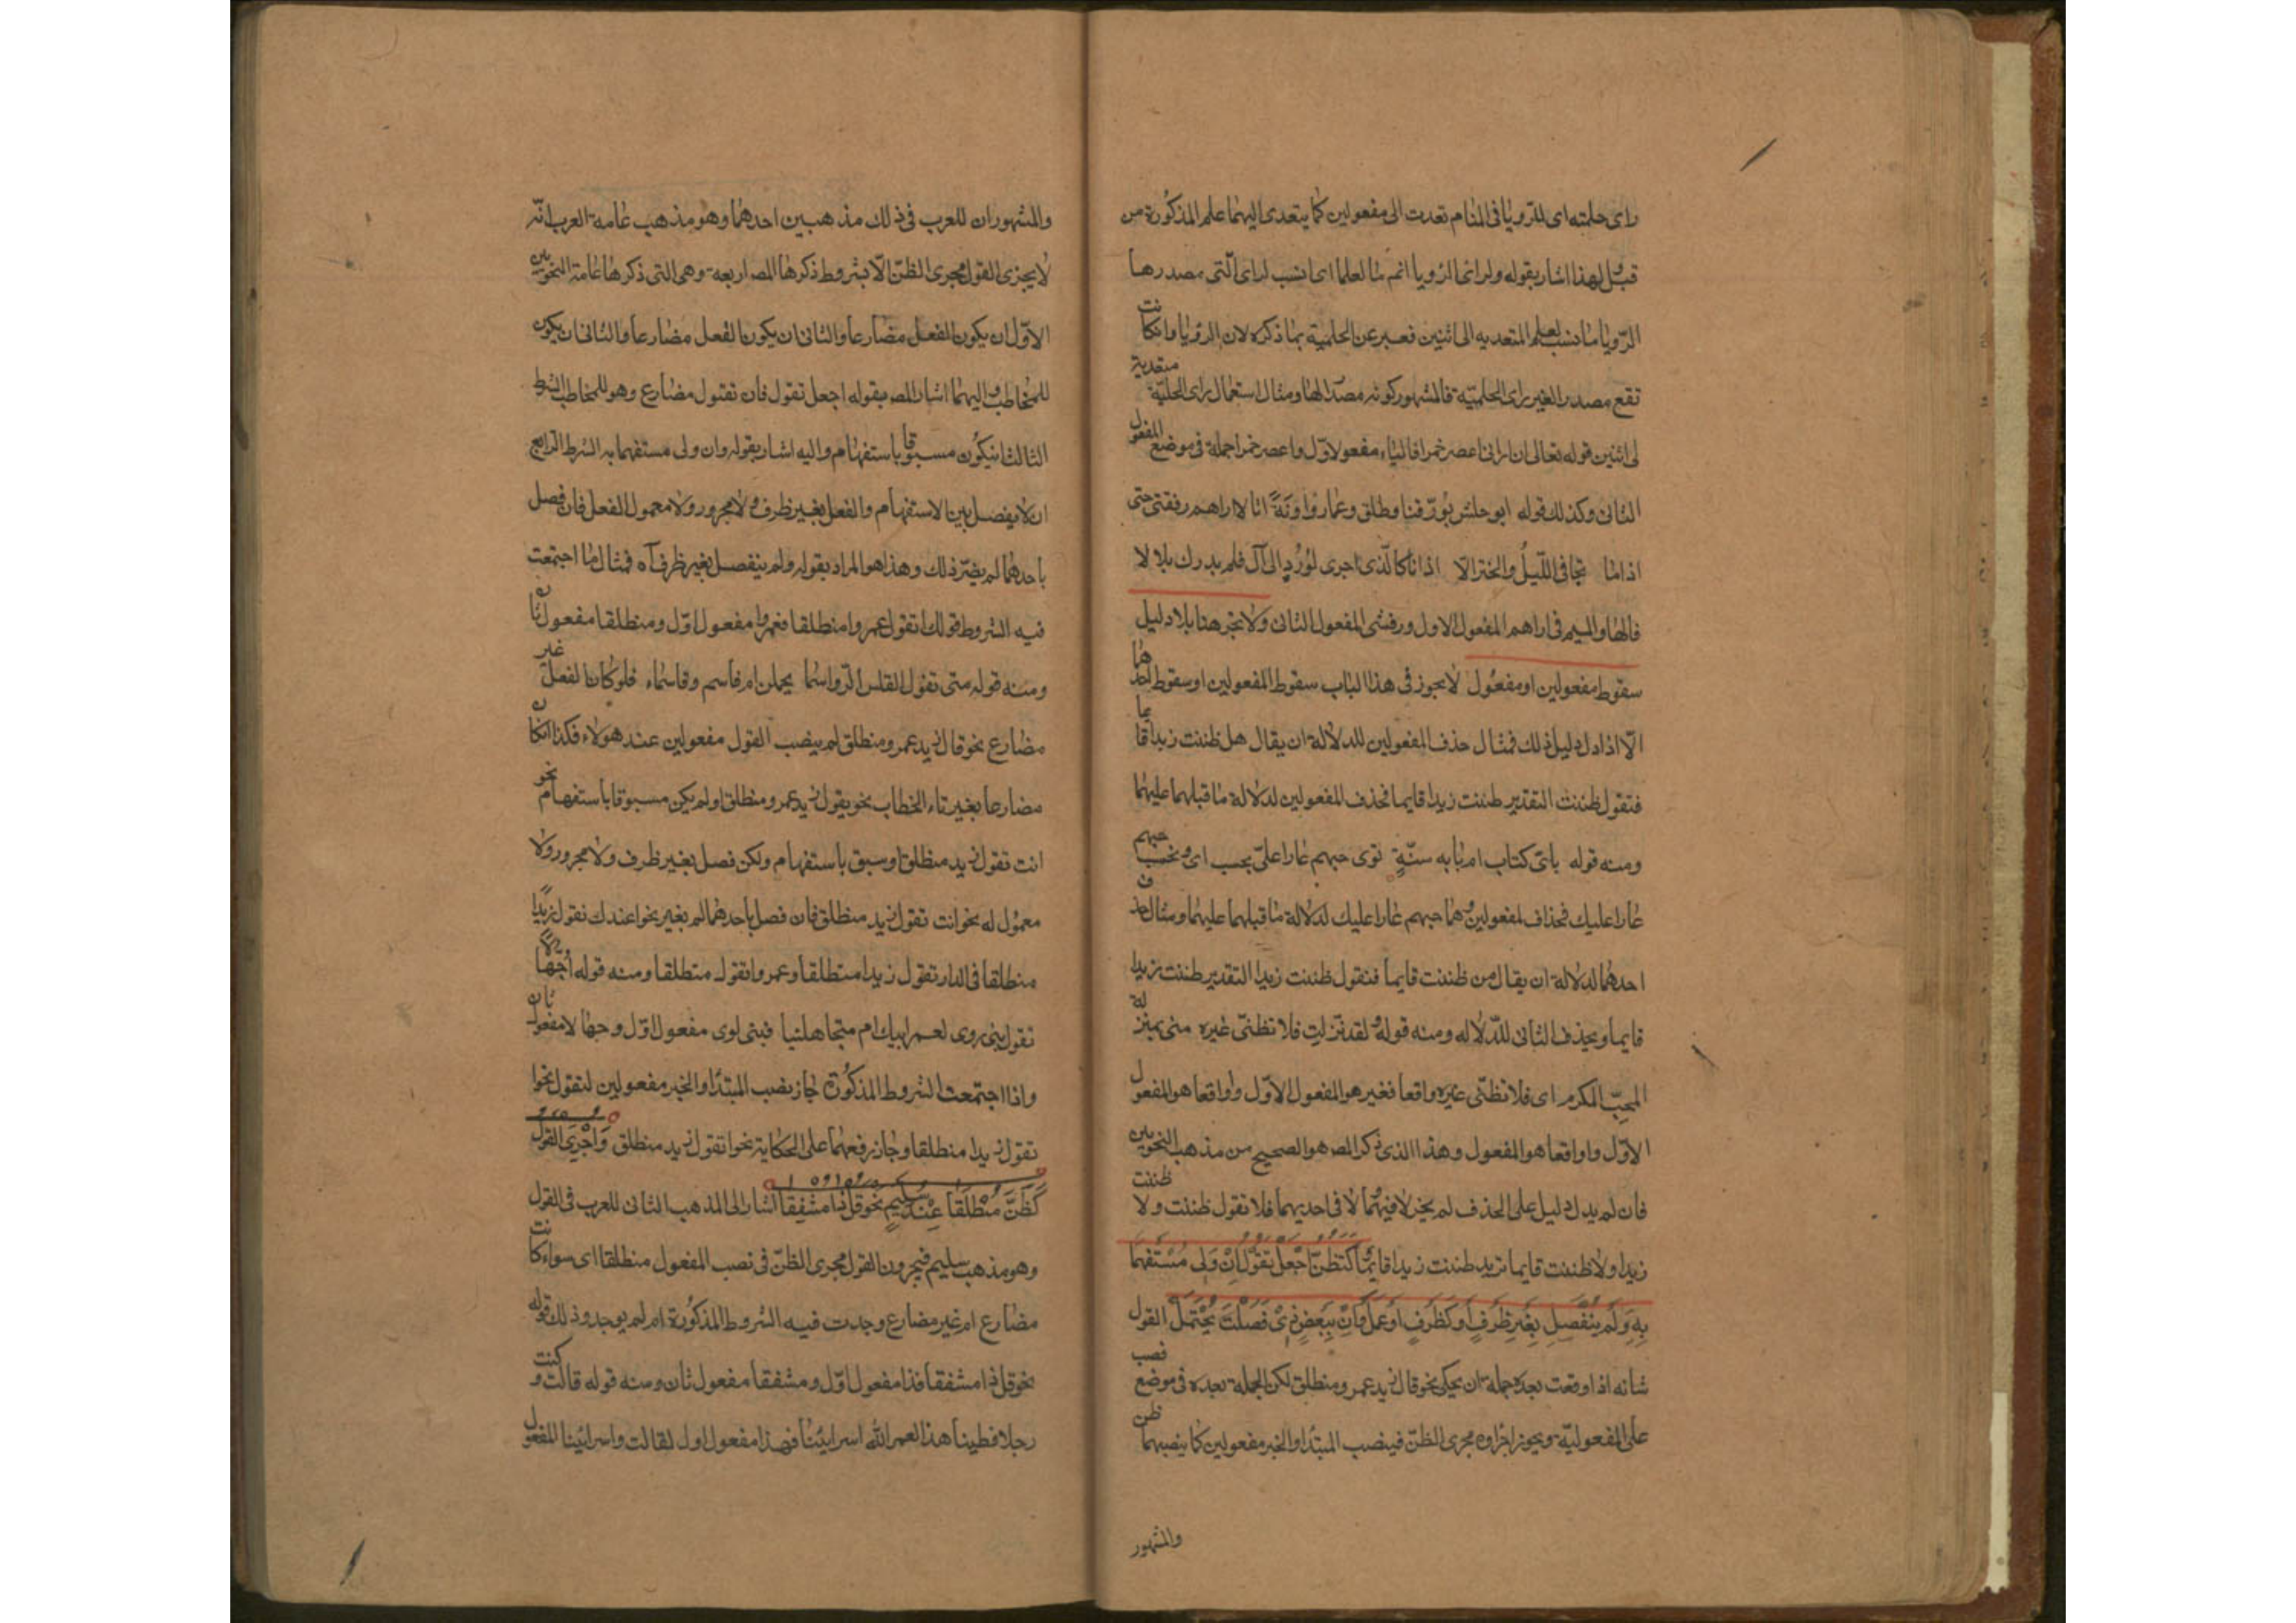 راى حلمته اى للرويا فى المنام تعدت الى مفعولين كما يتعدى اليهما علم المذكورة من
قبل ولهذا اشار بقوله ولراى الرويا انم ما لعلما اى انسب لراى الّتى مصدرها
الرّويا ما نسب لعلم المتعديه الى اثنين فعبر عن الحلمية بما ذكره لان الرؤيا وان كانت
تقع مصدر الغير راى الحلميّة فالمشهور كونه مصدرا لها ومثال استعمال راى الحلميّة متعدية
لى اثنين قوله تعالى انى ارانى اعصر خمرا فالياء مفعول اوّل واعصر خمرا جملة فى موضع المفعول
الثانى وكذلك قوله ابو حلش يورّقنا وطلق وعمار واونةً اثالا اراهم رفقتى حتى
اذا ما تجافى اللّيلُ وانخزالّا اذ انا كالّذى اجرى لوُرُدٍ الى آل فلم يدرك بلالا
فالها والميم فى اراهم المفعول الاول ورفقتى المفعول الثانى ولا تجز هنا بلا دليل
سقوط مفعولين او مفعول لا يجوز فى هذا الباب سقوط المفعولين او سقوط احدهما
الّا اذا دل دليل ذلك فمثال حذف المفعولين للدلالة ان يقال هل ظننت زيدا قايما
فتقول ظننت التقدير ظننت زيدا قايما فحذف المفعولين لدلالة ما قبلهما عليهما
ومنه قوله باىّ كتاب ام بايه سنّةٍ ترى حبهم عارا علىّ وتحسب اى وتحسب حبهم
عارا عليك فحذاف لمفعولين وهما حبهم عارا عليك لدلالة ما قبلهما عليهما ومثال حذف
احدهما لدلالة ان يقال من ظننت قايما فتقول ظننت زيدا التقدير ظننت زيدا
قايما ويحذف الثانى للدّلاله ومنه قوله ولقد نزلت فلا تظنّى غيره منى بمنزلة
المحبّ المكرم اى فلا تظنّى غيره واقعا فغير هو المفعول الاوّل وواقعا هو المفعول
الاوّل وواقعا هو المفعول وهذا الذى ذكر المص هو الصحيح من مذهب النحويين
فان لم يدل دليل على الحذف لم يجز لا فيهما ولا فى احديهما فلا تقول ظننت ولا ظننت
زيدا ولا ظننت قايما تريد ظننت زيدا قايما وَكَتظنّ اجْعلْ تقوُلُ اِنْ وَلِى مُسْتَفهَما
بِهِ وَلَمْ يَنْفَصِلِ بِغَيرِ ظَرْفٍ اَوْ كَظَرفٍ اَوْعَملَ وَاِنْ بِبَعضِ ذى فَصَلْتَ يُحْتَملْ القول
شانه اذا وقعت بعده جملة ان يحكى نحو قال زيد عمرو منطلق لكن الجملة بعده فى موضع نصب
على المفعوليّة ويجوز اجراوه مجرى الظنّ فينصب المبتدا والخبر مفعولين كما ينصبهما ظن
والمشهور
والمشهور ان للعرب فى ذلك مذهبين احدهما وهو مذهب عامة العرب انّه
لا يجزى القول مجرى الظنّ الّا بشروط ذكرها المص اربعة وهى التى ذكرها عامة النحويين
الاوّل ان يكون الفعل مضارعا والثانى ان يكون الفعل مضارعا والثانى ان يكون
للمخاطب واليهما اشار المص بقوله اجعل تقول فان تقول مضارع وهو للمخاطب الشرط
الثالث ان يكون مسبوقا باستفهام واليه اشار بقوله وان ولى مستفهما به الشرط الرابع
ان لا يفصل بين الاستفهام والفعل بغير ظرف ولا مجرور ولا معمول الفعل فان فصل
باحدهما لم يضرّ ذلك وهذا هو المراد بقوله ولم ينفصل بغير ظرف آه فمثال ما اجتمعت
فيه الشروط قولك اتقول عمروا منطلقا فعمروا مفعول اوّل ومنطلقا مفعول ثان
ومنه قوله متى تقول القلص الرّواسما يحملن ام قاسم وقاسماء فلو كان الفعل غير
مضارع نحو قال زيد عمرو منطلق لم ينصب القول مفعولين عند هولاء فكذا ان كان
مضارعا بغير تاء الخطاب نحو يقول زيد عمرو منطلق او لم يكن مسبوقا باستفهام نحو
انت تقول زيد منطلق او سبق باستفهام ولكن فصل بغير ظرف ولا مجرور ولا
معمول له نحو انت تقول زيد منطلق فان فصل باحدهما لم يغير نحو اعندك تقول زيدًا
منطلقا فى الدار تقول زيدا منطلقا وعمروا تقول منطلقا ومنه قوله اجّهالًا
تقول بنى روى لعمر ابيك ام متجاهلنيا فبنى لوى مفعول اوّل وجهالا مفعول ثان
واذا اجتمعت الشروط المذكورة جاز نصب المبتدا والخبر مفعولين لتقول نحوا
تقول زيدا منطلقا وجاز رفعهما على الحكاية نحو اتقول زيد منطلق وَاجْرِىَ القَولُ
كَظَنَّ مُنْطلَقا عِنْدَ سُليمٍ نحو قل ذا مشْفِقا اشار الى المذهب الثانى للعرب فى القول
وهو مذهب سليم فيجرون القول مجرى الظنّ فى نصب المفعول منطلقا اى سواء كانت
مضارع ام غير مضارع وجدت فيه الشروط المذكورة ام لم يوجد وذلك قوله
نحو قل ذا مشفقا فذا مفعول اوّل ومشفقا مفعول ثان ومنه قوله قالت وكنت
رجلا فطينا هذا لعمر الله اسرائينا فهذا مفعول اول لقالت واسرائينا المفعول